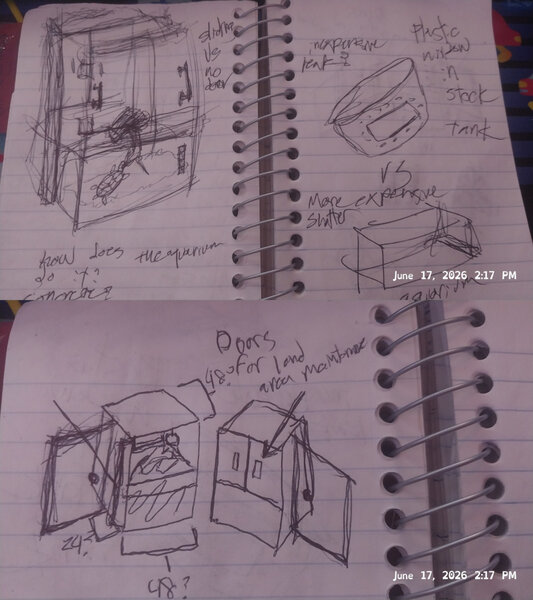 sliding
vs
no
door
how does the aquarium
do it?
concrete?
inexpensive
leak?
Plastic
window
in
stock
tank
VS
More expensive
aquarium
June 17, 2026 2:17 PM
Doors
for land
area
48?
24?
48?
June 17, 2026 2:17 PM